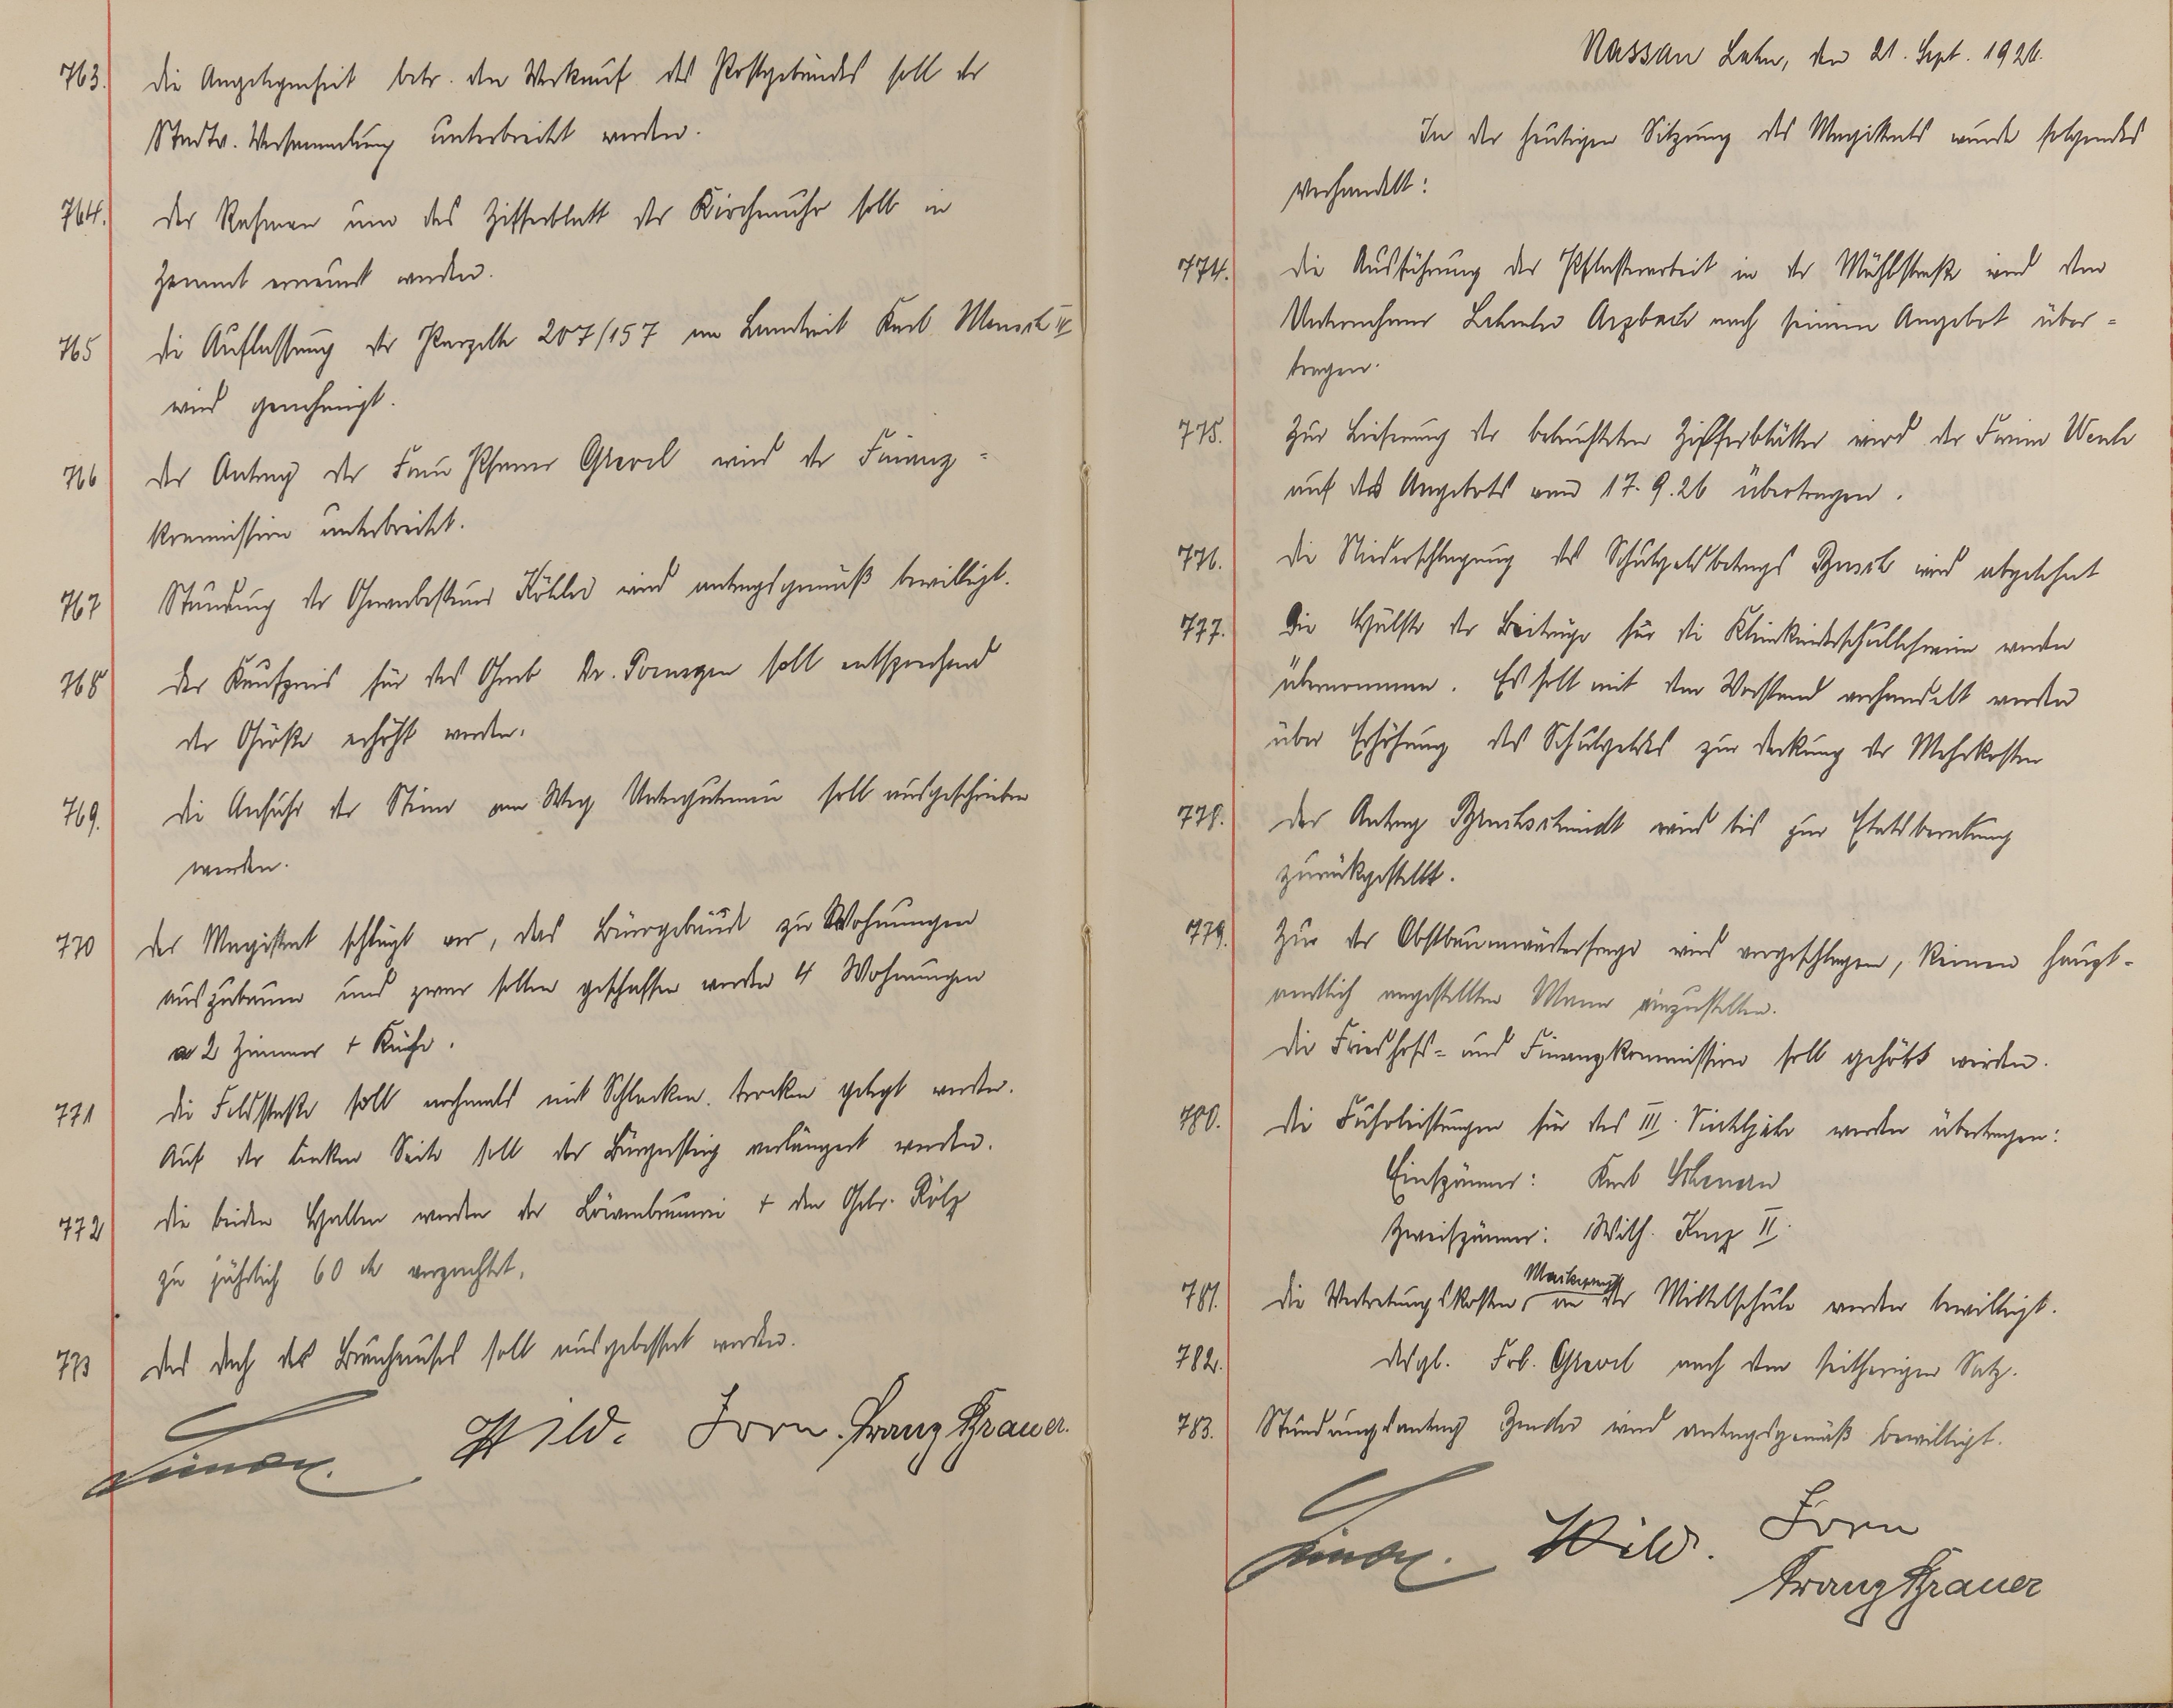 763. Die Angelegenheit betr. den Verkauf des Postgebäudes soll der
Stadtv. Versammlung unterbreitet werden.
764. Der Rahmen um das Zifferblatt der Kirchenuhr soll in
Zement erneuert werden.
765 Die Auflassung der Parzelle 207/157 an Landwirt Karl
wird genehmigt.
766 Der Antrag der Frau Pfarrer Grevel wird der Finanz-
kommission unterbreitet.
767 Stundung der Gewerbesteuer Köhler wird antragsgemäß bewilligt.
768 Der Kaufpreis für das Grab Dr. soll entsprechend
der Größe erhöht werden.
769. Die Anfuhr der Steine am Weg Unterguterau soll ausgeschrieben
werden.
770 Der Magistrat schlägt vor, das Bürogebäude zu Wohnungen
auszubauen und zwar sollen geschaffen werden 4 Wohnungen
a 2 Zimmer + Küche.
771 Die Feldstraße soll nochmals mit Schlacken trocken gelegt werden.
Auf der linken Seite soll der Bürgersteig verlängert werden.
772 Die beiden Hallen werden der Löwenbrauerei + den Gebr. Kölz
zu jährlich 60 M verpachtet.
773 Das Dach des Brauhauses soll ausgebessert werden.
Wild. Jorn. Franz Brauer.
Nassau Lahn, den 21. Sept. 1926.
In der heutigen Sitzung des Magistrats wurde folgendes
verhandelt:
774. Die Ausführung der Pflasterarbeit in der Mühlstraße wird dem
Unternehmer Arzbach nach seinem Angebot über-
tragen.
775. Zur Lieferung der beleuchteten Zifferblätter wird der Firma Weule
auf das Angebots vom 17. 9. 26 übertragen.
776. Die Niederschlagung des Schulgeldbetrags Busch wird abgelehnt
777. Die Hälfte der Beiträge für die Kleinkinderschullehrerin werden
übernommen. Es soll mit dem Vorstand verhandelt werden
über Erhöhung des Schulgeldes zur Deckung der Mehrkosten
778. Der Antrag Bruchschmidt wird bis zur Etatsberatung
zurückgestellt.
779. Zur der Obstbaumwärterfrage wird vorgeschlagen, keinen haupt-
amtlich angestellten Mann einzustellen.
Die Friedhofs- und Finanzkommission soll gehört werden.
780. Die Fuhrleistungen für das III. Vierteljahr werden übertragen:
Einspänner: Karl Scheuern
Zweispänner: Wilh. Kurz II.
781. Die Vertretungskosten an der Mittelschule werden bewilligt.
782. desgl. Frl. Grevel nach dem seitherigen Satz.
783. Stundungsantrag wird antragsgemäß bewilligt.
Wild. Jorn
Franz Brauer